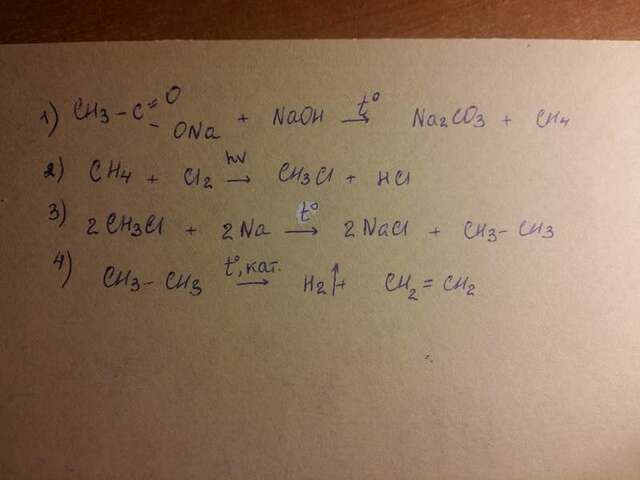 1) CH3 - C = O
- ONa + NaOH t° → Na2CO3 + CH4
2) CH4 + Cl2 hν → CH3Cl + HCl
3) 2CH3Cl + 2Na t° → 2NaCl + CH3 - CH3
4) CH3 - CH3 t°, кат. → H2↑ + CH2 = CH2